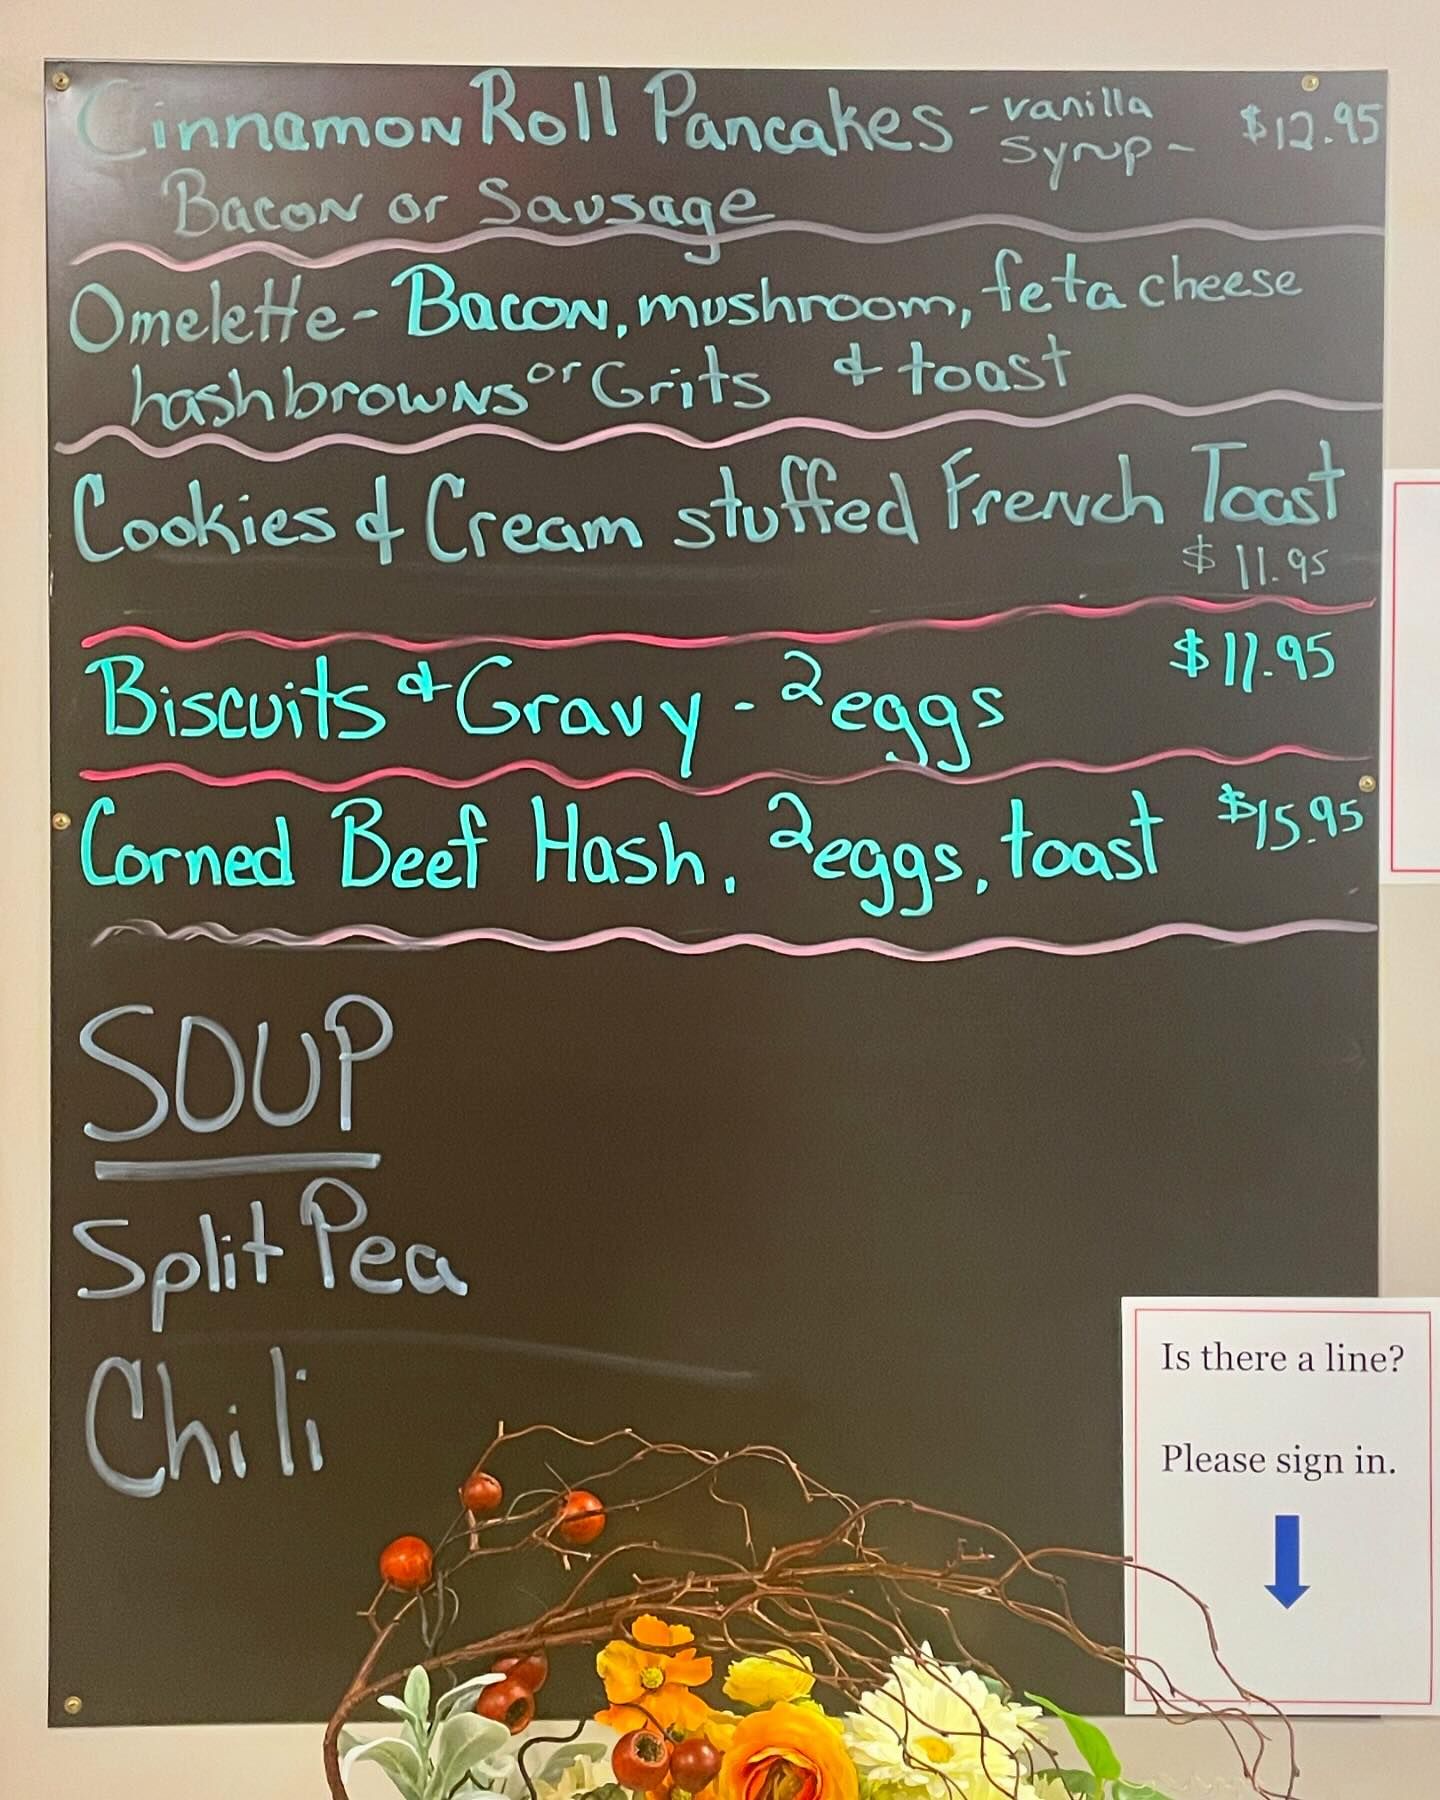 Cinnamon Roll Pancakes - vanilla syrup - $12.95
Bacon or Sausage
Omelette - Bacon, mushroom, feta cheese
hashbrowns or Grits & toast
Cookies & Cream stuffed French Toast
$11.95
Biscuits & Gravy - 2 eggs $11.95
Corned Beef Hash, 2 eggs, toast $15.95
SOUP
Split Pea
Chili
Is there a line?
Please sign in.